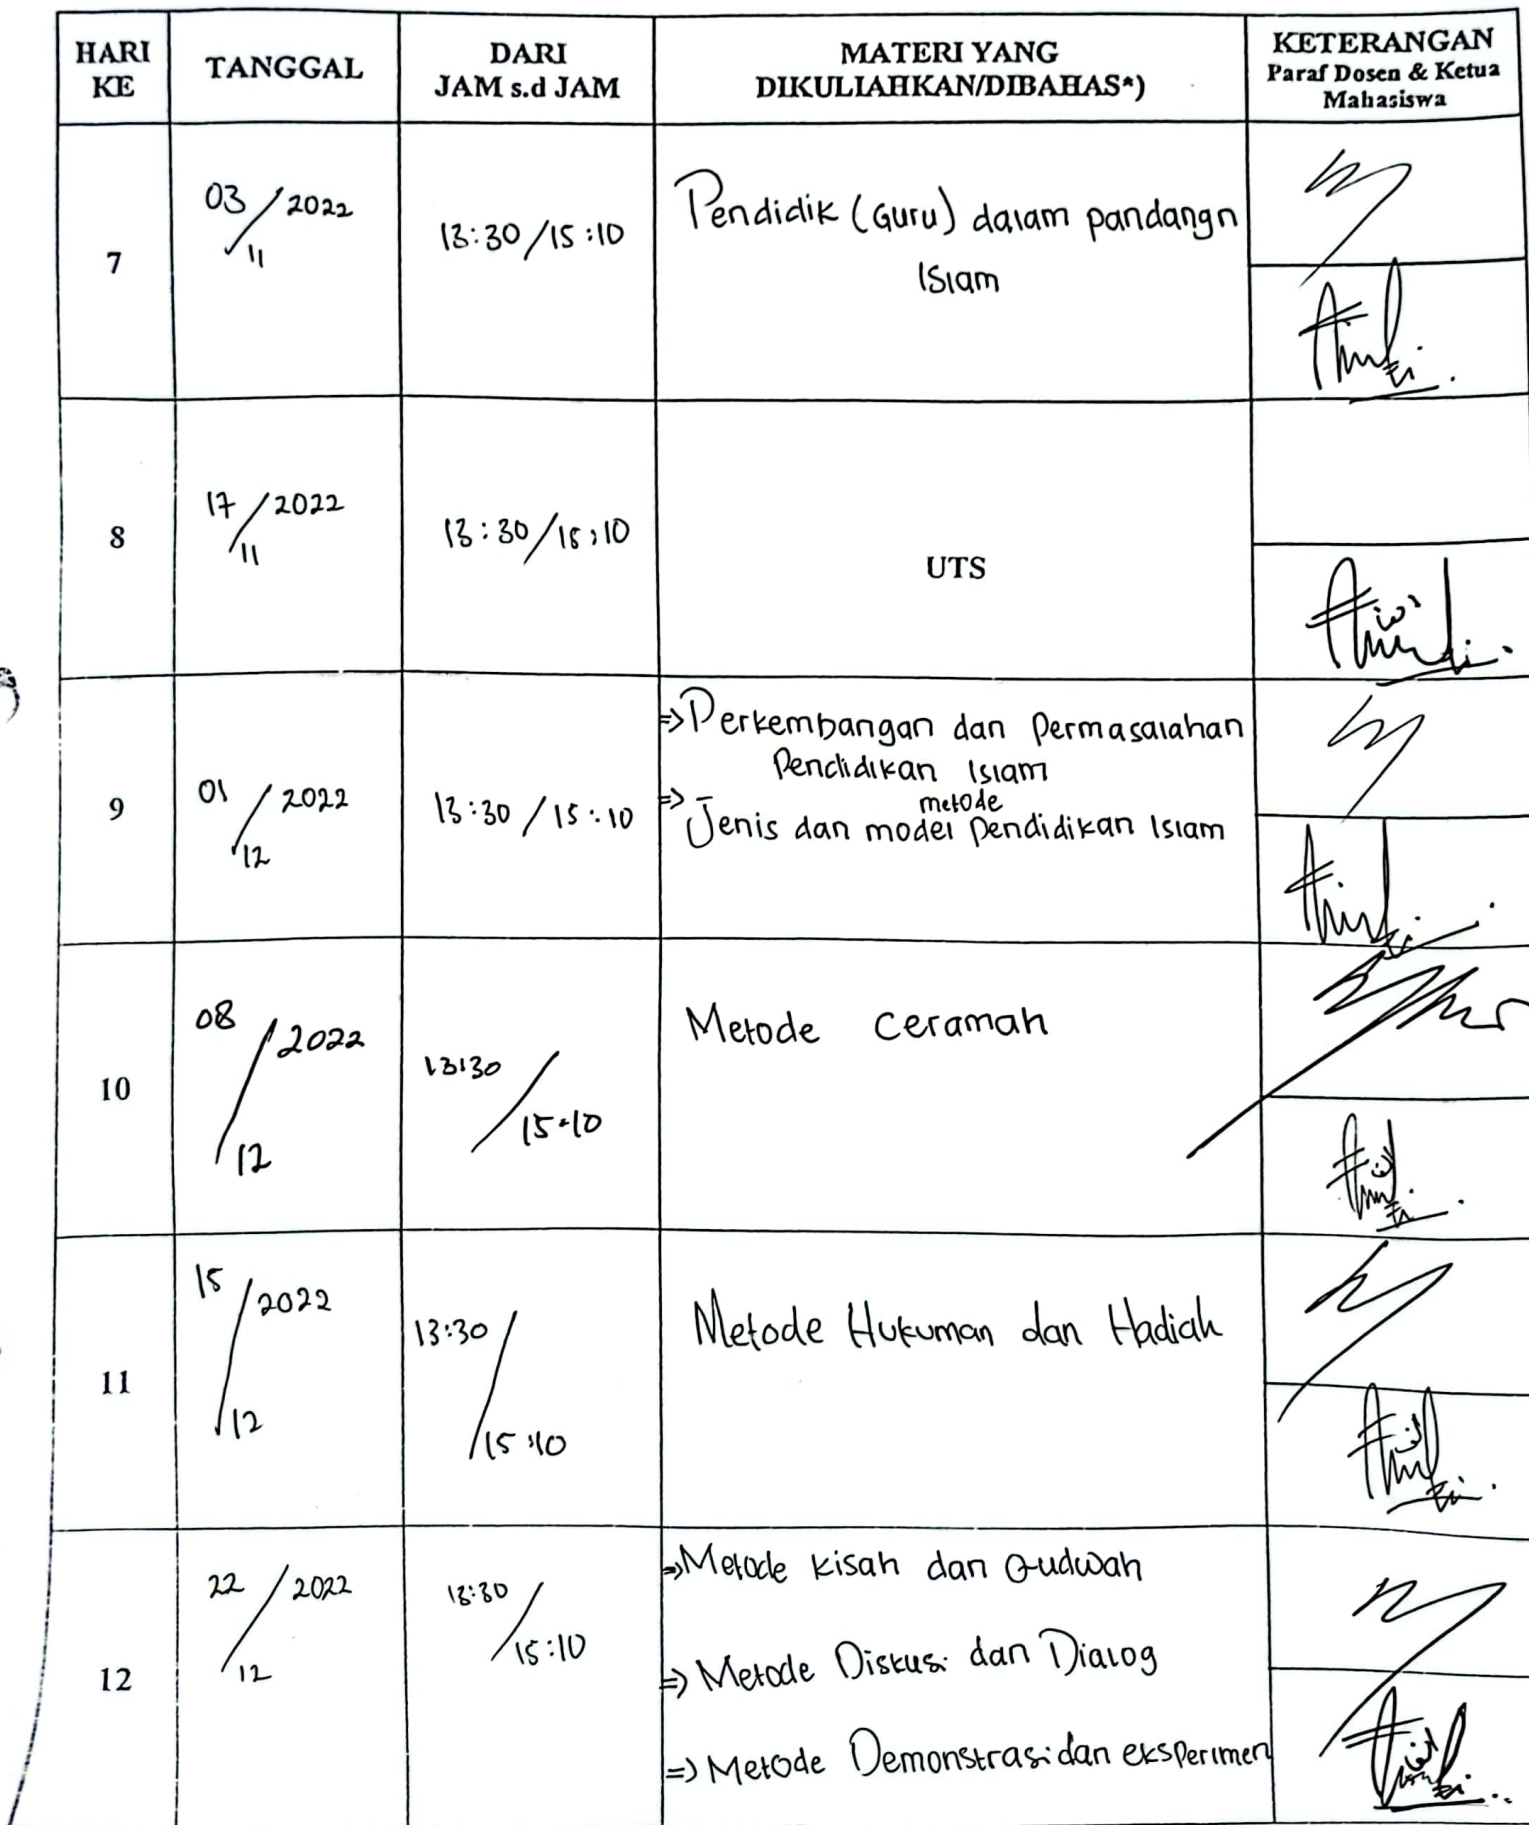 HARI KE
TANGGAL
DARI
JAM s.d JAM
MATERI YANG
DIKULIAHKAN/DIBAHAS*)
KETERANGAN
Paraf Dosen & Ketua
Mahasiswa
7
03/2022
11
13:30/15:10
Pendidik (Guru) dalam pandangn
Islam
8
17/2022
11
13:30/15:10
UTS
9
01/2022
12
13:30/15:10
=>Perkembangan dan Permasalahan
Pendidikan Islam
metode
=> Jenis dan model Pendidikan Islam
10
08/2022
12
13:30
15:10
Metode Ceramah
11
15/2022
12
13:30
15:10
Metode Hukuman dan Hadiah
12
22/2022
12
13:30
15:10
=>Metode kisah dan Qudwah
=> Metode Diskusi dan Dialog
=> Metode Demonstrasi dan eksperimen